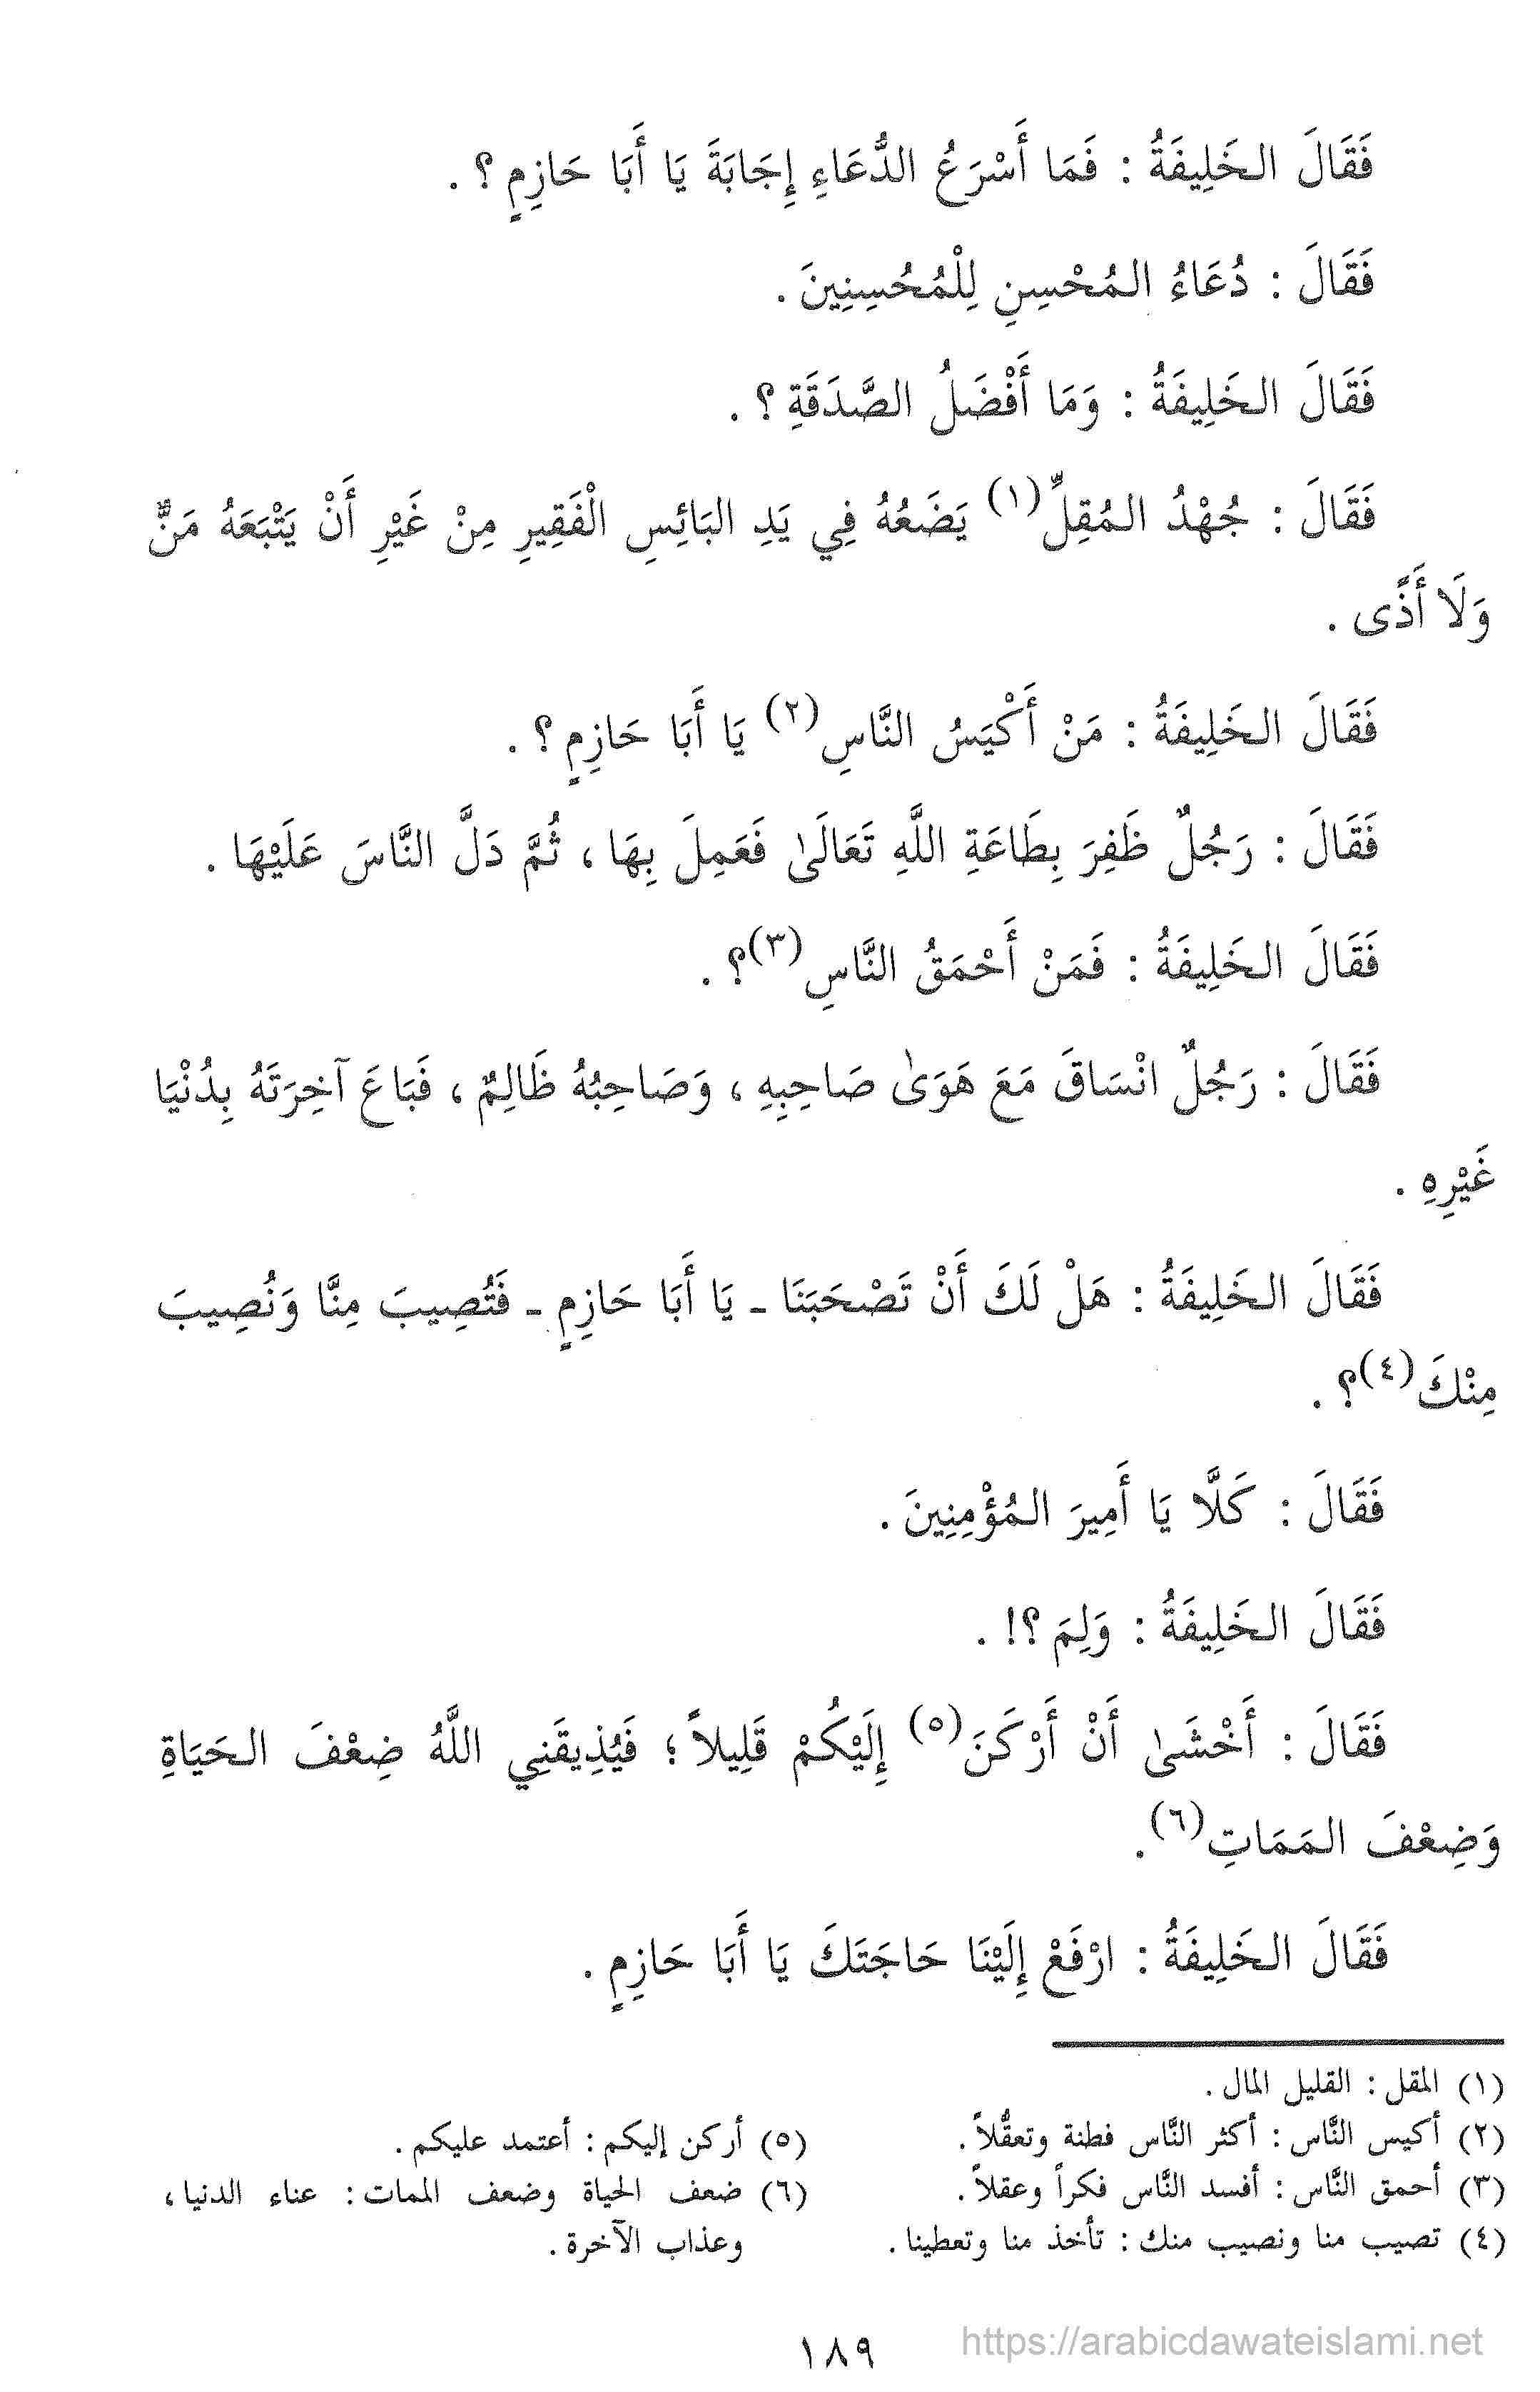 فَقَالَ الخَلِيفَةُ : فَمَا أَسْرَعُ الدُّعَاءِ إِجَابَةً يَا أَبَا حَازِمٍ ؟ .
فَقَالَ : دُعَاءُ المُحْسِنِ لِلْمُحْسِنِينَ .
فَقَالَ الخَلِيفَةُ : وَمَا أَفْضَلُ الصَّدَقَةِ ؟ .
فَقَالَ : جُهْدُ المُقِلِّ(١) يَضَعُهُ فِي يَدِ البَائِسِ الْفَقِيرِ مِنْ غَيْرِ أَنْ يَتْبَعَهُ مَنٌّ
وَلَا أَذًى .
فَقَالَ الخَلِيفَةُ : مَنْ أَكْيَسُ النَّاسِ(٢) يَا أَبَا حَازِمٍ ؟ .
فَقَالَ : رَجُلٌ ظَفِرَ بِطَاعَةِ اللَّهِ تَعَالَىٰ فَعَمِلَ بِهَا ، ثُمَّ دَلَّ النَّاسَ عَلَيْهَا .
فَقَالَ الخَلِيفَةُ : فَمَنْ أَحْمَقُ النَّاسِ(٣)؟ .
فَقَالَ : رَجُلٌ انْسَاقَ مَعَ هَوَىٰ صَاحِبِهِ ، وَصَاحِبُهُ ظَالِمٌ ، فَبَاعَ آخِرَتَهُ بِدُنْيَا
غَيْرِهِ .
فَقَالَ الخَلِيفَةُ : هَلْ لَكَ أَنْ تَصْحَبَنَا ـ يَا أَبَا حَازِمٍ ـ فَتُصِيبَ مِنَّا وَنُصِيبَ
مِنْكَ(٤)؟ .
فَقَالَ : كَلَّا يَا أَمِيرَ المُؤْمِنِينَ .
فَقَالَ الخَلِيفَةُ : وَلِمَ ؟! .
فَقَالَ : أَخْشَىٰ أَنْ أَرْكَنَ(٥) إِلَيْكُمْ قَلِيلاً ؛ فَيُذِيقَنِي اللَّهُ ضِعْفَ الحَيَاةِ
وَضِعْفَ المَمَاتِ(٦).
فَقَالَ الخَلِيفَةُ : ارْفَعْ إِلَيْنَا حَاجَتَكَ يَا أَبَا حَازِمٍ .
(١) المقل : القليل المال .
(٢) أكيس النَّاس : أكثر النَّاس فطنة وتعقُّلاً .
(٣) أحمق النَّاس : أفسد النَّاس فكراً وعقلاً .
(٤) تصيب منا ونصيب منك : تأخذ منا وتعطينا .
(٥) أركن إليكم : أعتمد عليكم .
(٦) ضعف الحياة وضعف الممات : عناء الدنيا ،
وعذاب الآخرة .
١٨٩
https://arabicdawateislami.net